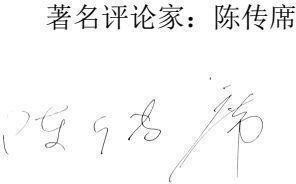 著名评论家：陈传席
陈传席